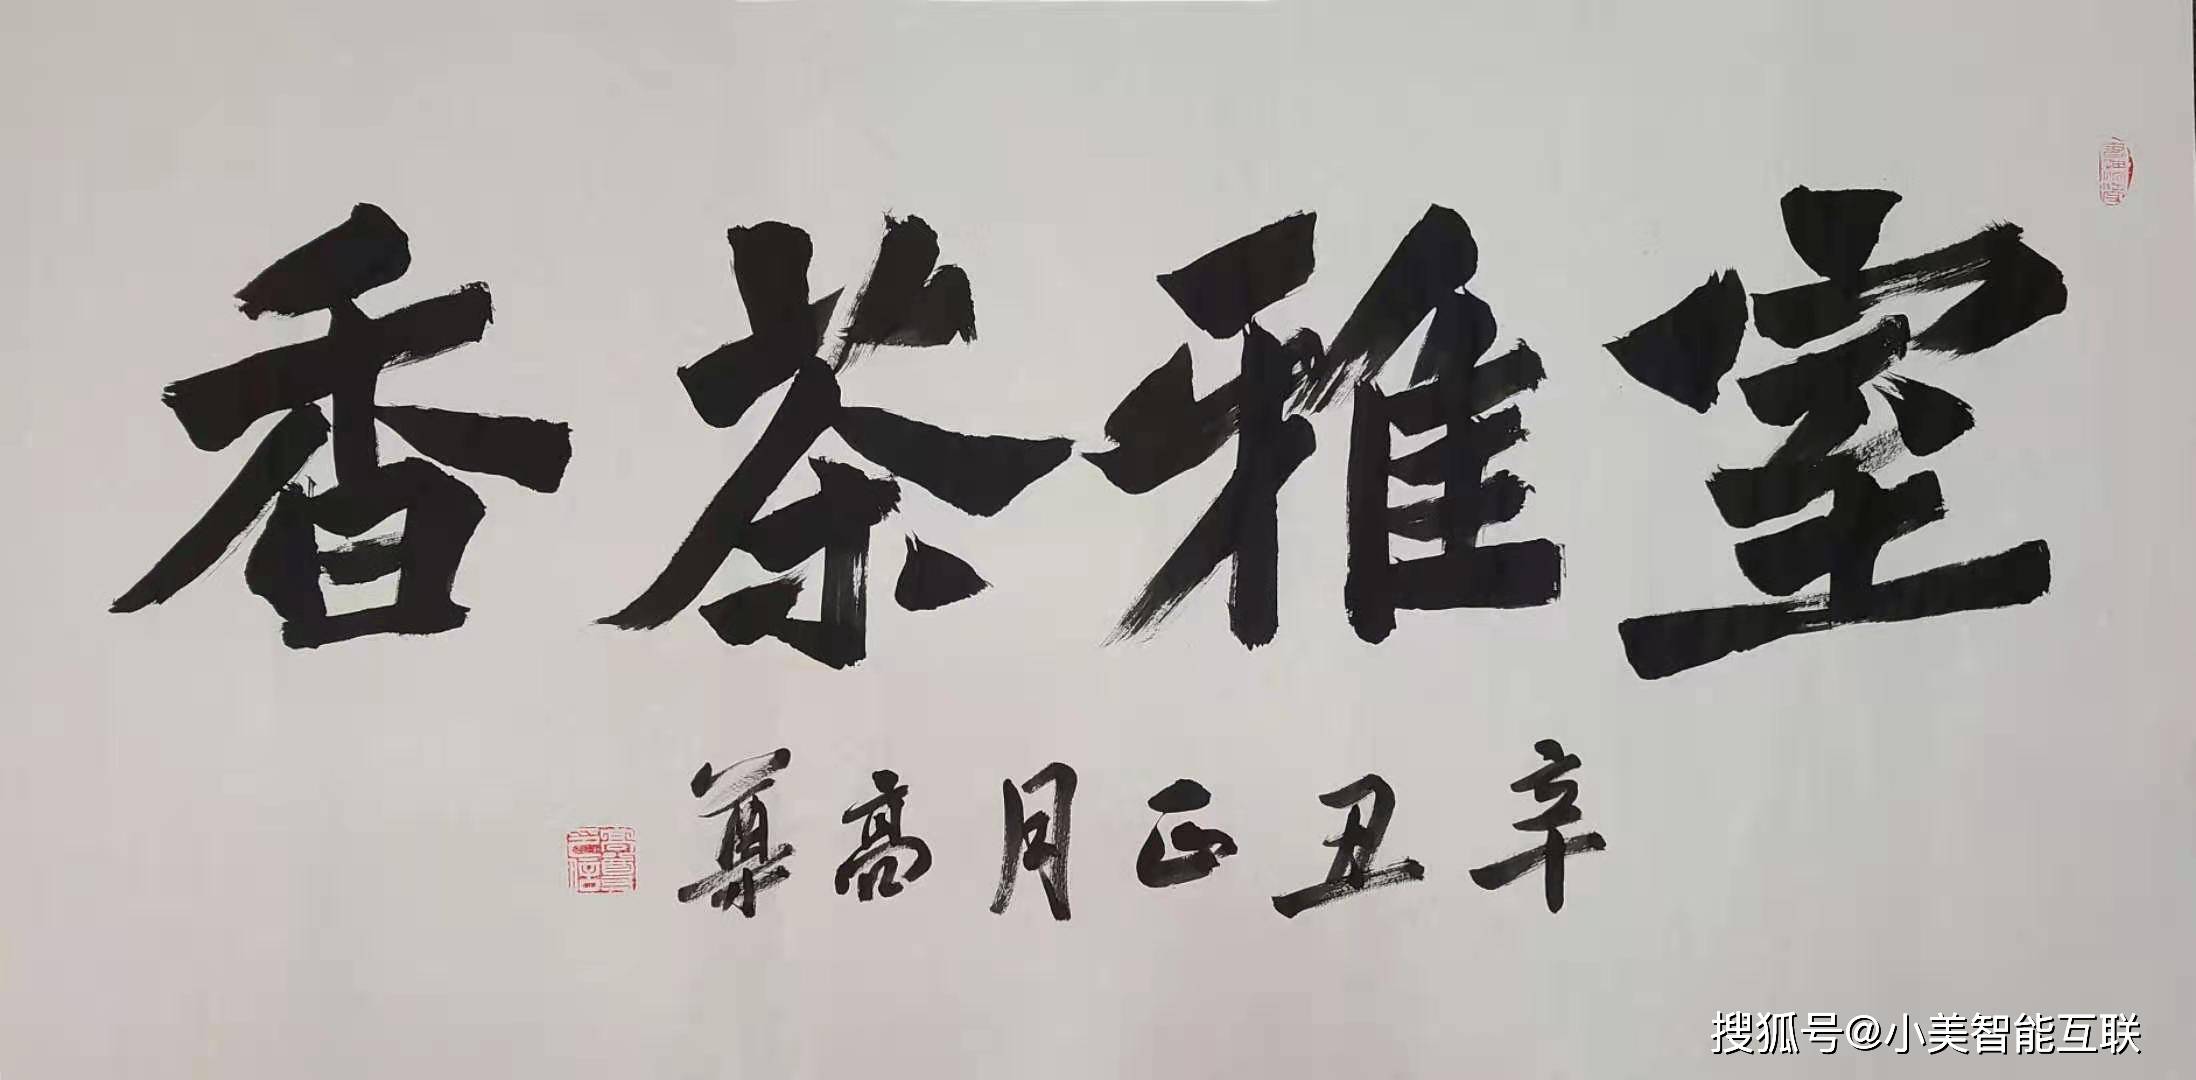 室雅茶香
辛丑正月高尊
搜狐号@小美智能互联